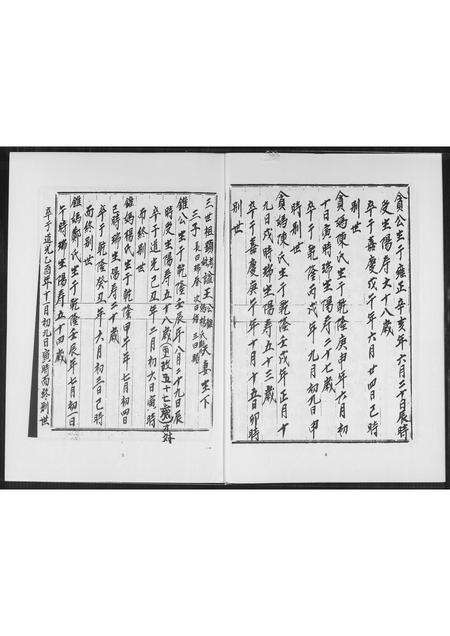 貪公生于雍正辛亥年六月二十日辰時
受生陽寿六十八歲
卒于嘉慶戊午年六月廿四日己時
别世
貪媽陳氏生于乾隆庚申年六月初
十日寅時瑞生陽寿二十七歲
卒于乾隆丙戌年九月初九日申
時别世
貪媽陳氏生于乾隆壬戌年正月十
九日戌時瑞生陽寿五十三歲
卒于嘉慶庚午年十月十五日卯時
别世
6
三世祖
三子長
錐公生于乾隆壬辰年八月二十九日辰
時受生陽寿五十八歲
卒于道光己丑年二月初六日寅時
而終别世
錐媽楊氏生于乾隆甲午年七月初四
己時瑞生陽寿二十歲
卒于乾隆癸丑年六月初三日己時
而終别世
錐媽鄭氏生于乾隆壬辰年七月初日
午時瑞生陽寿五十四歲
卒于道光乙酉年十一月初九日寅時而終别世
5